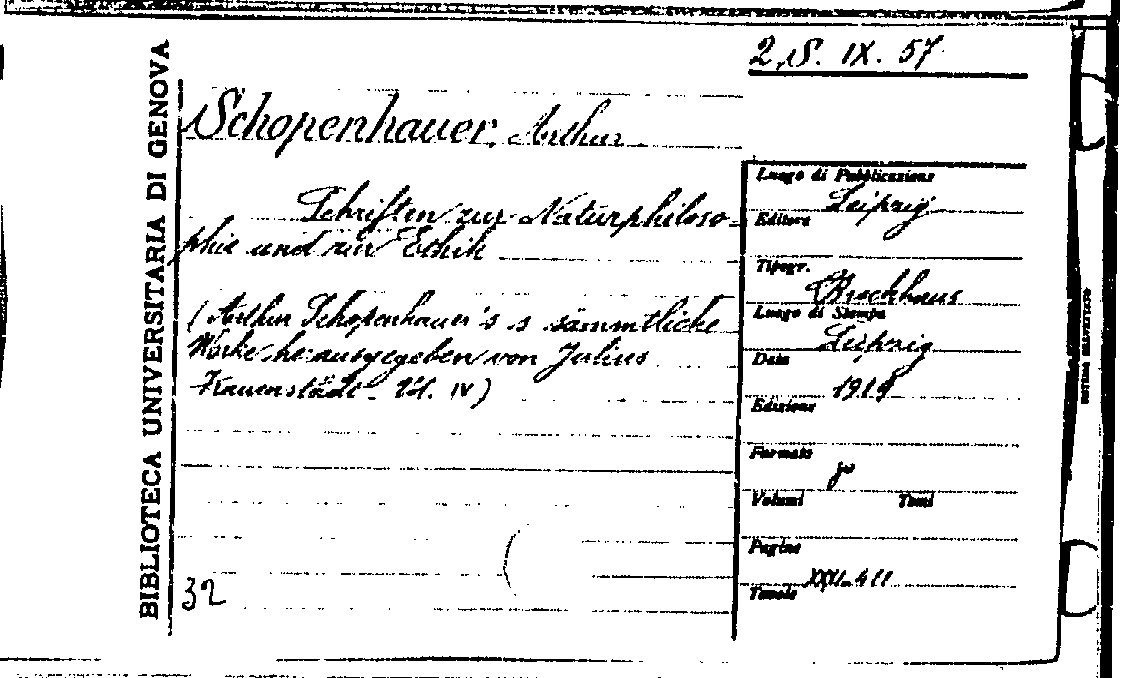 BIBLIOTECA UNIVERSITARIA DI GENOVA
2.S. IX. 57
Schopenhauer, Arthur
Schriften zur Naturphiloso-
phie und zur Ethik
(Arthur Schopenhauer's s sämmtliche
Werke herausgegeben von Julius
Frauenstädt - Bd. IV)
32
Luogo di Pubblicazione
Leipzig
Editore
Tipogr.
Brockhaus
Luogo di Stampa
Leipzig
Data
1919
Edizione
Formato
Volumi Tomi
Pagine
Tavole